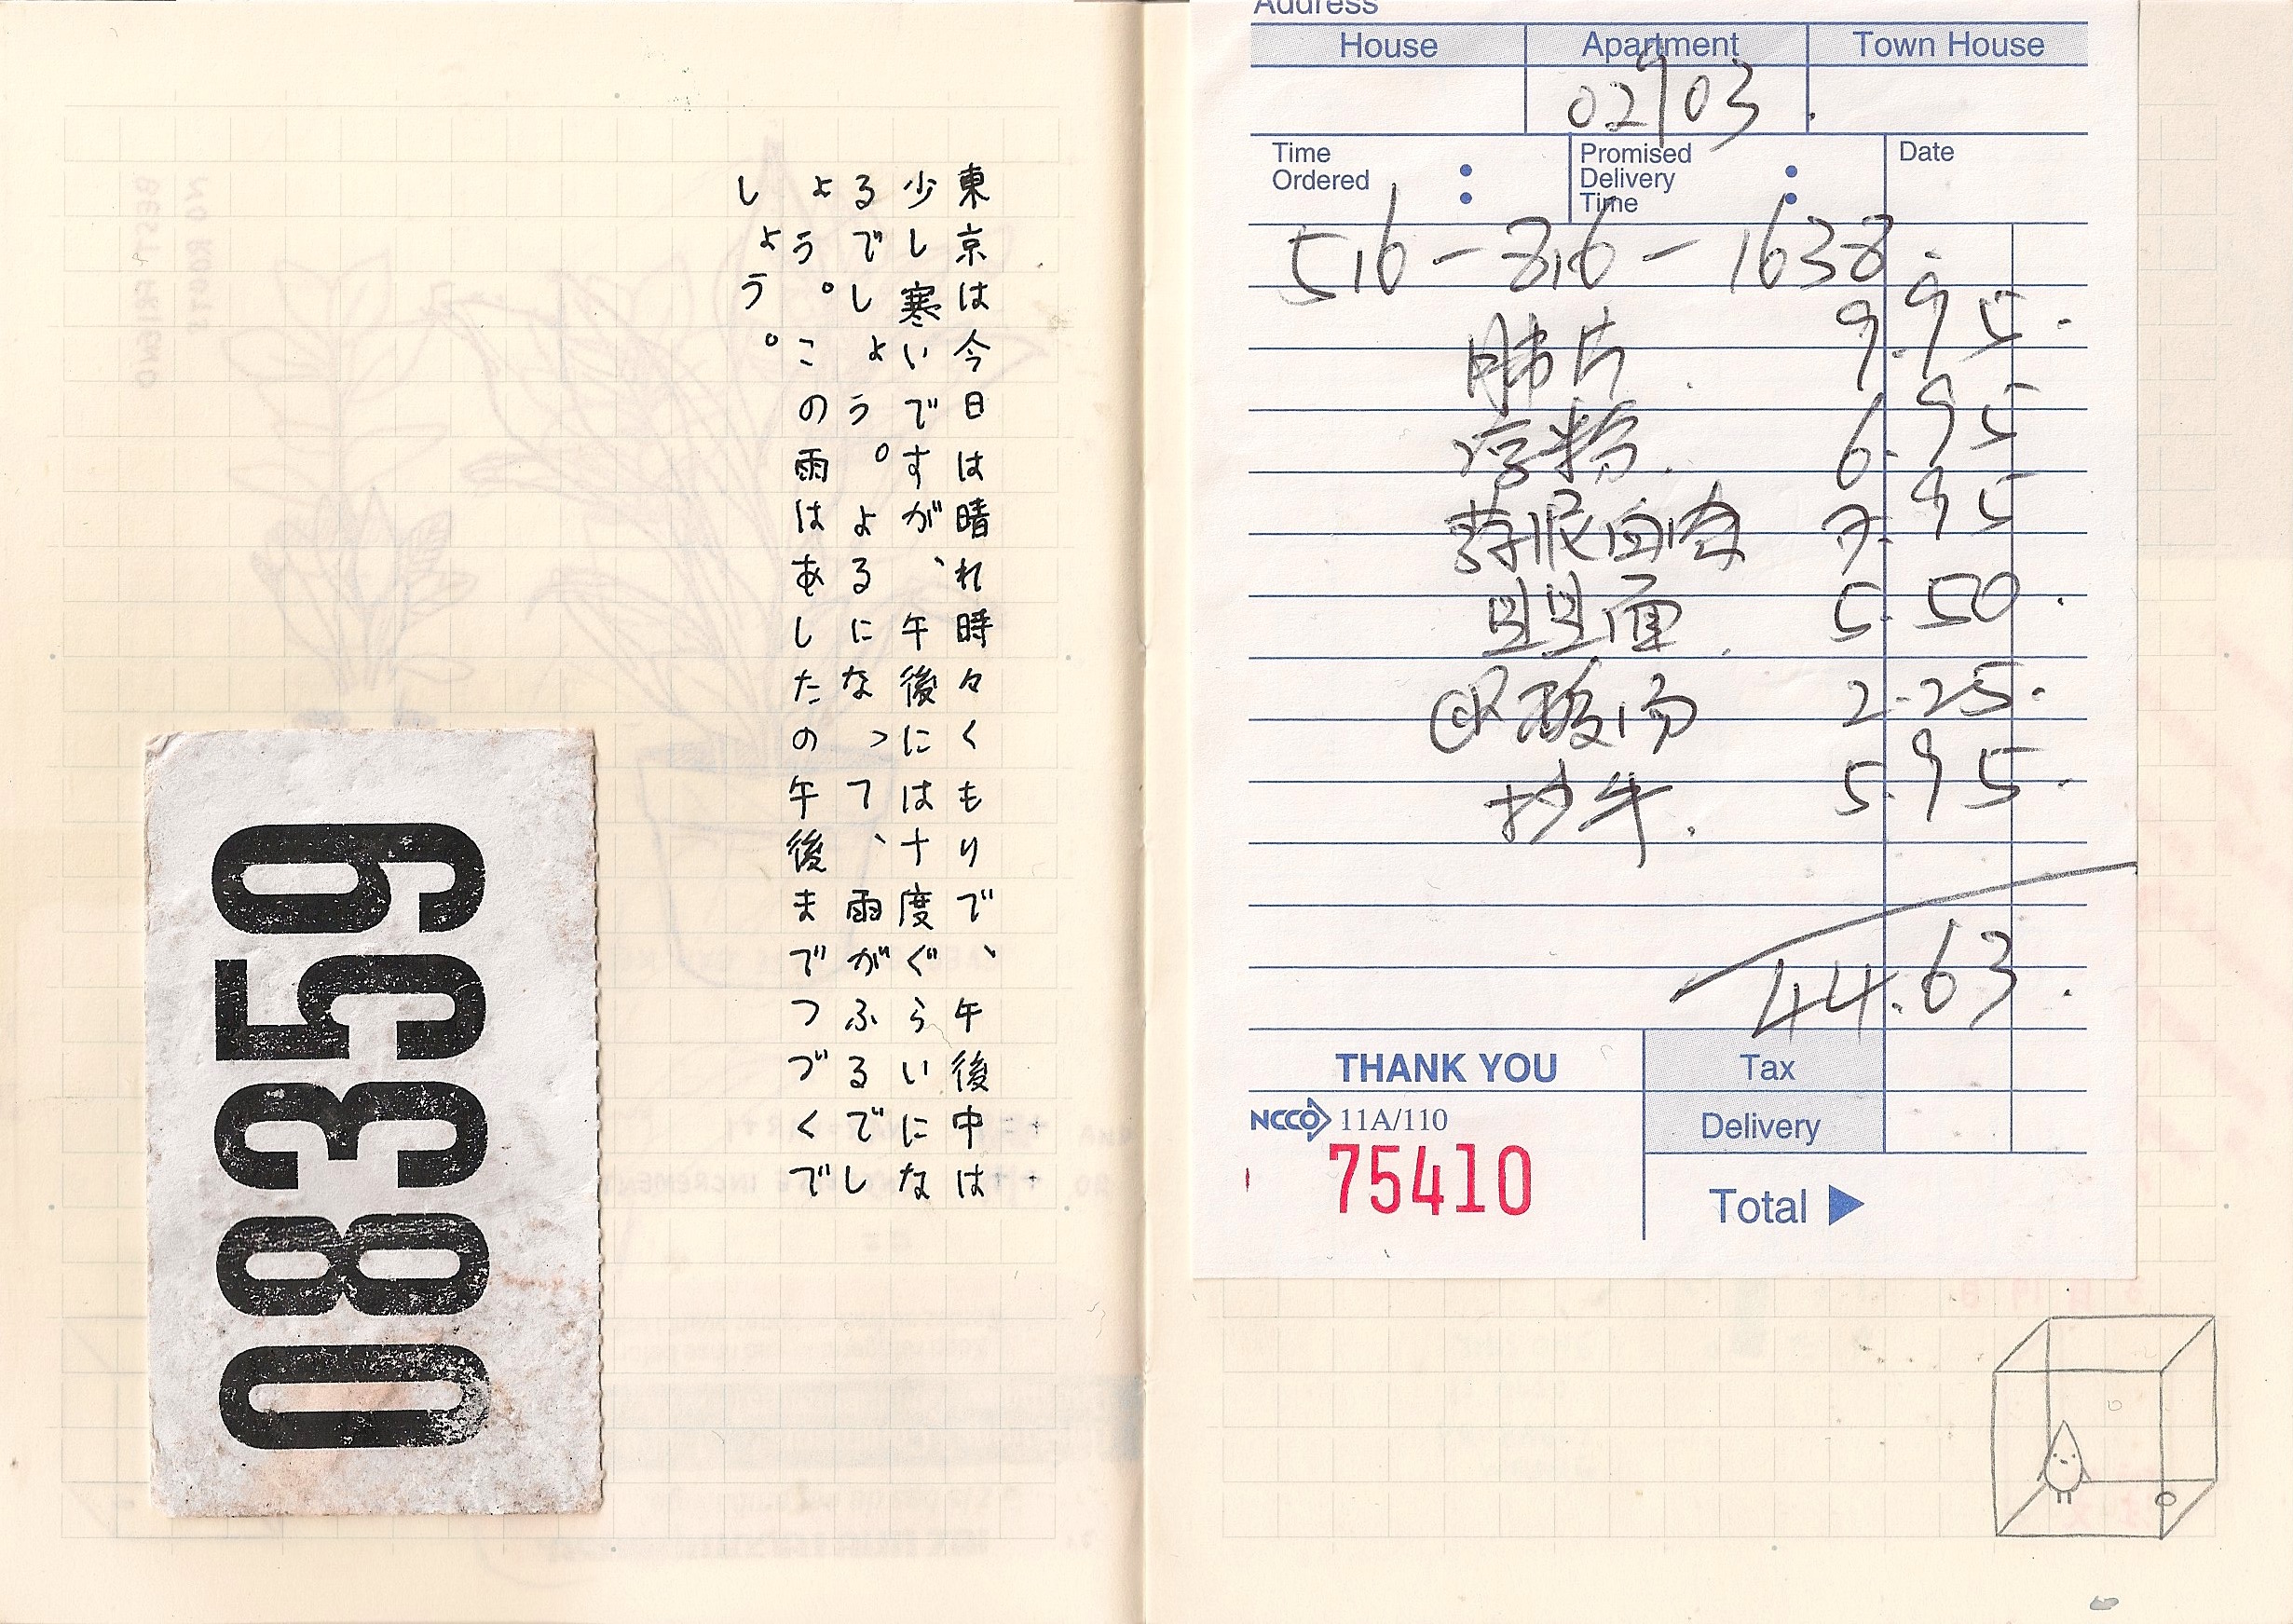 東京は今日は晴れ時々くもりで、午後中は
少し寒いですが、午後には十度ぐらいにな
るでしょう。よるになって、雨がふるでし
ょう。この雨はあしたの午後までつづくで
しょう。
08359
Address
House Apartment Town House
02903
Time Ordered : Promised Delivery Time : Date
516-816-1638
肺片 9.95
凉粉 6.95
蒜泥白肉 7.95
旦旦面 5.50
酸汤 2.25
抄手 5.95
44.63
THANK YOU Tax
NCCO 11A/110 Delivery
75410
Total